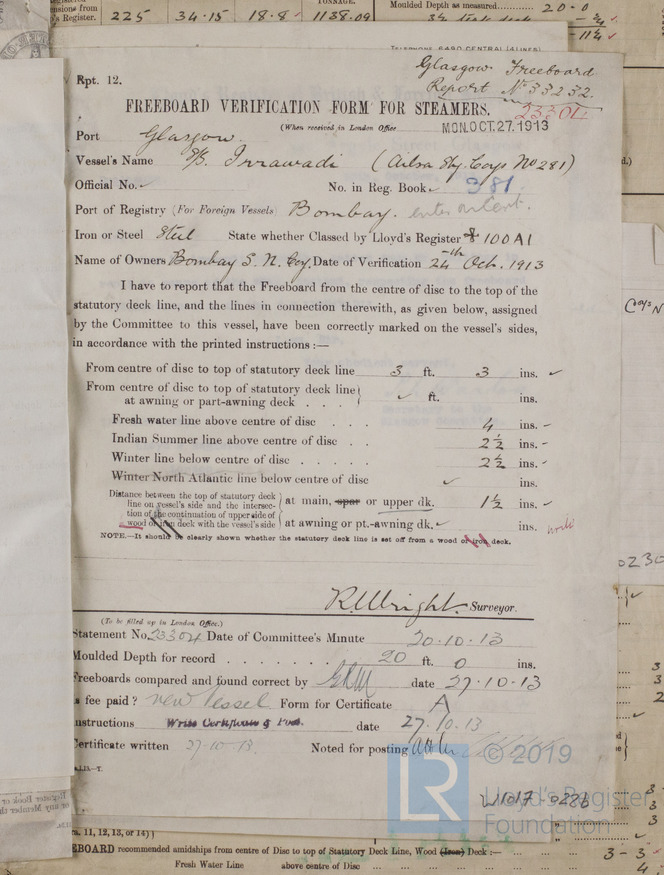 225 34.15 18.8 1138.09
Moulded Depth as measured 20-0
Register.
TELEPHONE
CENTRAL
Rpt. 12.
Glasgow Freeboard
Report No 33232.
FREEBOARD VERIFICATION FORM FOR STEAMERS.
23304
(When received in London Office
MON. OCT. 27. 1913
Port Glasgow
Vessel's Name S/S. Irrawadi (Ailsa Sby. Coys No 281)
Official No.
No. in Reg. Book 381
Port of Registry (For Foreign Vessels) Bombay.
Iron or Steel Steel State whether Classed by Lloyd's Register 100 A1
Name of Owners Bombay S. N. Coy. Date of Verification 24th Oct. 1913
I have to report that the Freeboard from the centre of disc to the top of the
statutory deck line, and the lines in connection therewith, as given below, assigned
by the Committee to this vessel, have been correctly marked on the vessel's sides,
in accordance with the printed instructions :—
From centre of disc to top of statutory deck line 3 ft. 3 ins.
From centre of disc to top of statutory deck line
at awning or part-awning deck . . . ft. ins.
Fresh water line above centre of disc . . . 4 ins.
Indian Summer line above centre of disc . . 2½ ins.
Winter line below centre of disc . . . . . 2½ ins.
Winter North Atlantic line below centre of disc ins.
Distance between the top of statutory deck
line on vessel's side and the intersec-
tion of the continuation of upper side of
wood or iron deck with the vessel's side
at main, spar or upper dk. 1½ ins.
at awning or pt.-awning dk. ins.
NOTE.—It should be clearly shown whether the statutory deck line is set off from a wood or iron deck.
R. Wright. Surveyor.
(To be filled up in London Office.)
Statement No. 23304 Date of Committee's Minute 20.10.13
Moulded Depth for record . . . . . . . 20 ft. 0 ins.
Freeboards compared and found correct by date 27.10.13
Is fee paid? new Vessel Form for Certificate A
Instructions Write Certificate & Post. date 27.10.13
Certificate written 27-10-13. Noted for posting
© 2019
LR
Lloyd's Register
Foundation
W1017 0226
Coys N
0230
11, 12, 13, or 14)
FREEBOARD recommended amidships from centre of Disc to top of Statutory Deck Line, Wood (Iron) Deck :— 3-3
Fresh Water Line above centre of Disc 4